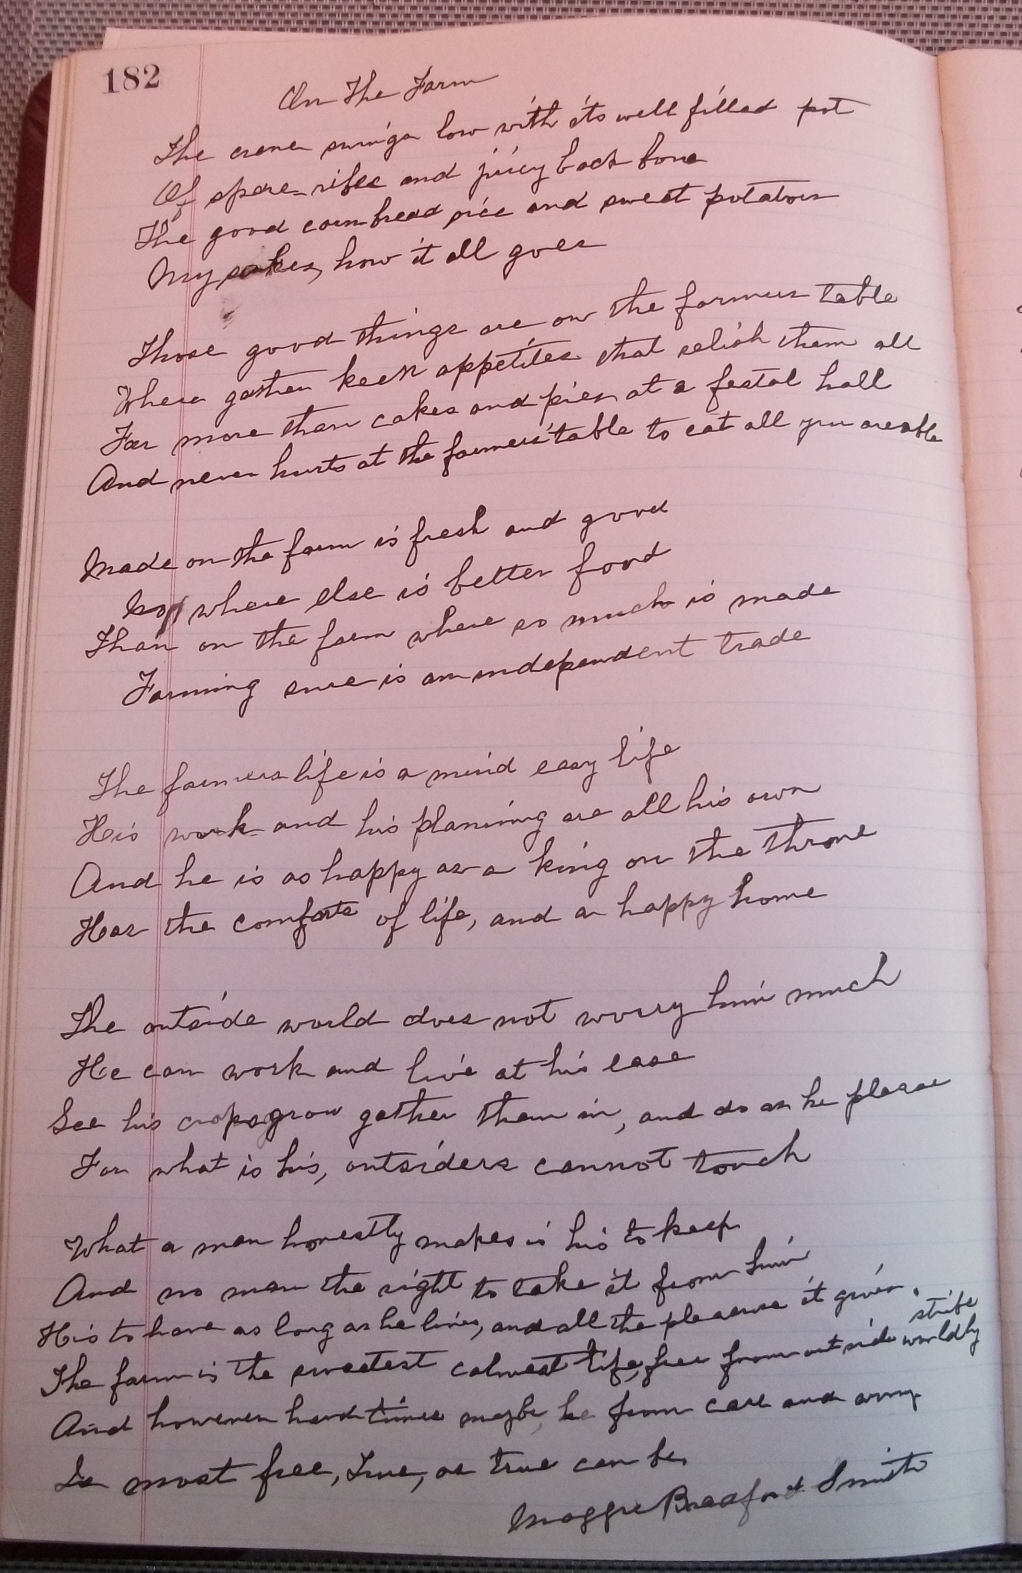 182
On The Farm
The crane swings low with its well filled pot
Of spare-ribs and juicy back bone
The good corn bread rice and sweet potatoes
My sakes, how it all goes
Those good things are on the farmers table
Where gather keen appetites that relish them all
Far more than cakes and pies at a festal hall
And never hurts at the farmers' table to eat all you are able
Made on the farm is fresh and good
No where else is better food
Than on the farm where so much is made
Farming sure is an independent trade
The farmers life is a mind easy life
His work and his planning are all his own
And he is as happy as a king on the throne
Has the comforts of life, and a happy home
The outside world does not worry him much
He can work and live at his ease
See his crops grow gather them in, and do as he please
For what is his, outsiders cannot touch
What a man honestly makes is his to keep
And no man the right to take it from him
His to have as long as he lives, and all the pleasure it given.
The farm is the sweetest calmest life, free from outside worldly strife
And however hard times maybe, he from care and
Is most free, True, as true can be.
Maggie Bradford Smith